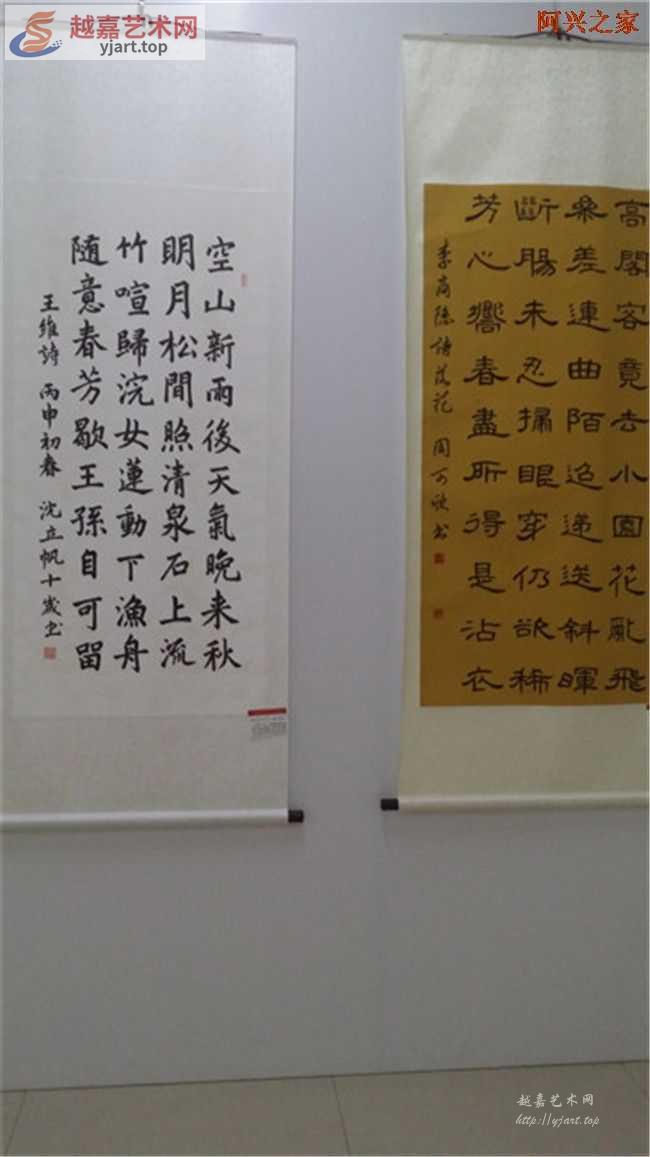 越嘉艺术网
yjart.top
阿兴之家
空山新雨後天氣晚来秋
眀月松間照清泉石上流
竹喧歸浣女蓮動下漁舟
随意春芳歇王孫自可留
王維詩 丙申初春 沈立帆十歲书
高閣客竟去小園花亂飛
參差連曲陌迢递送斜暉
斷腸未忍掃眼穿仍欲稀
芳心嚮春盡所得是沾衣
李商隱詩落花 周可书
越嘉艺术网
http://yjart.top